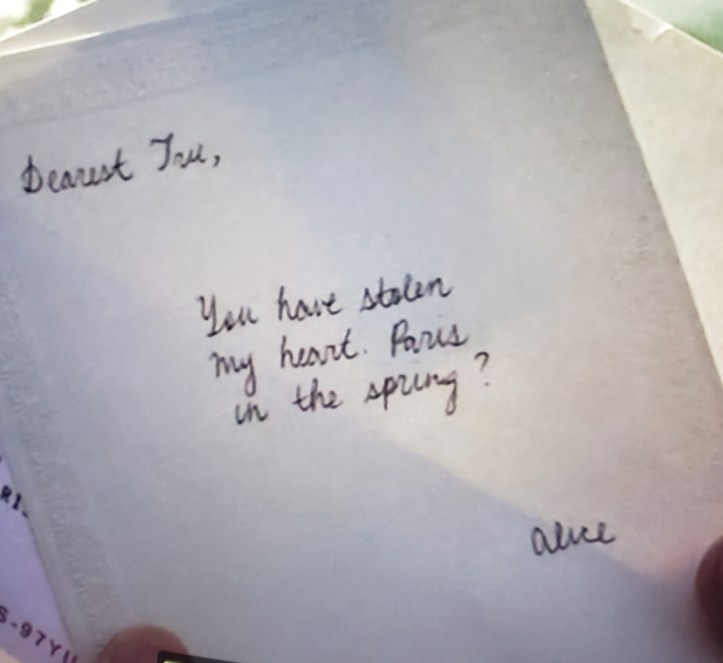 Dearest Tru,
You have stolen
my heart. Paris
in the spring?
Alice
RI
S-97YU